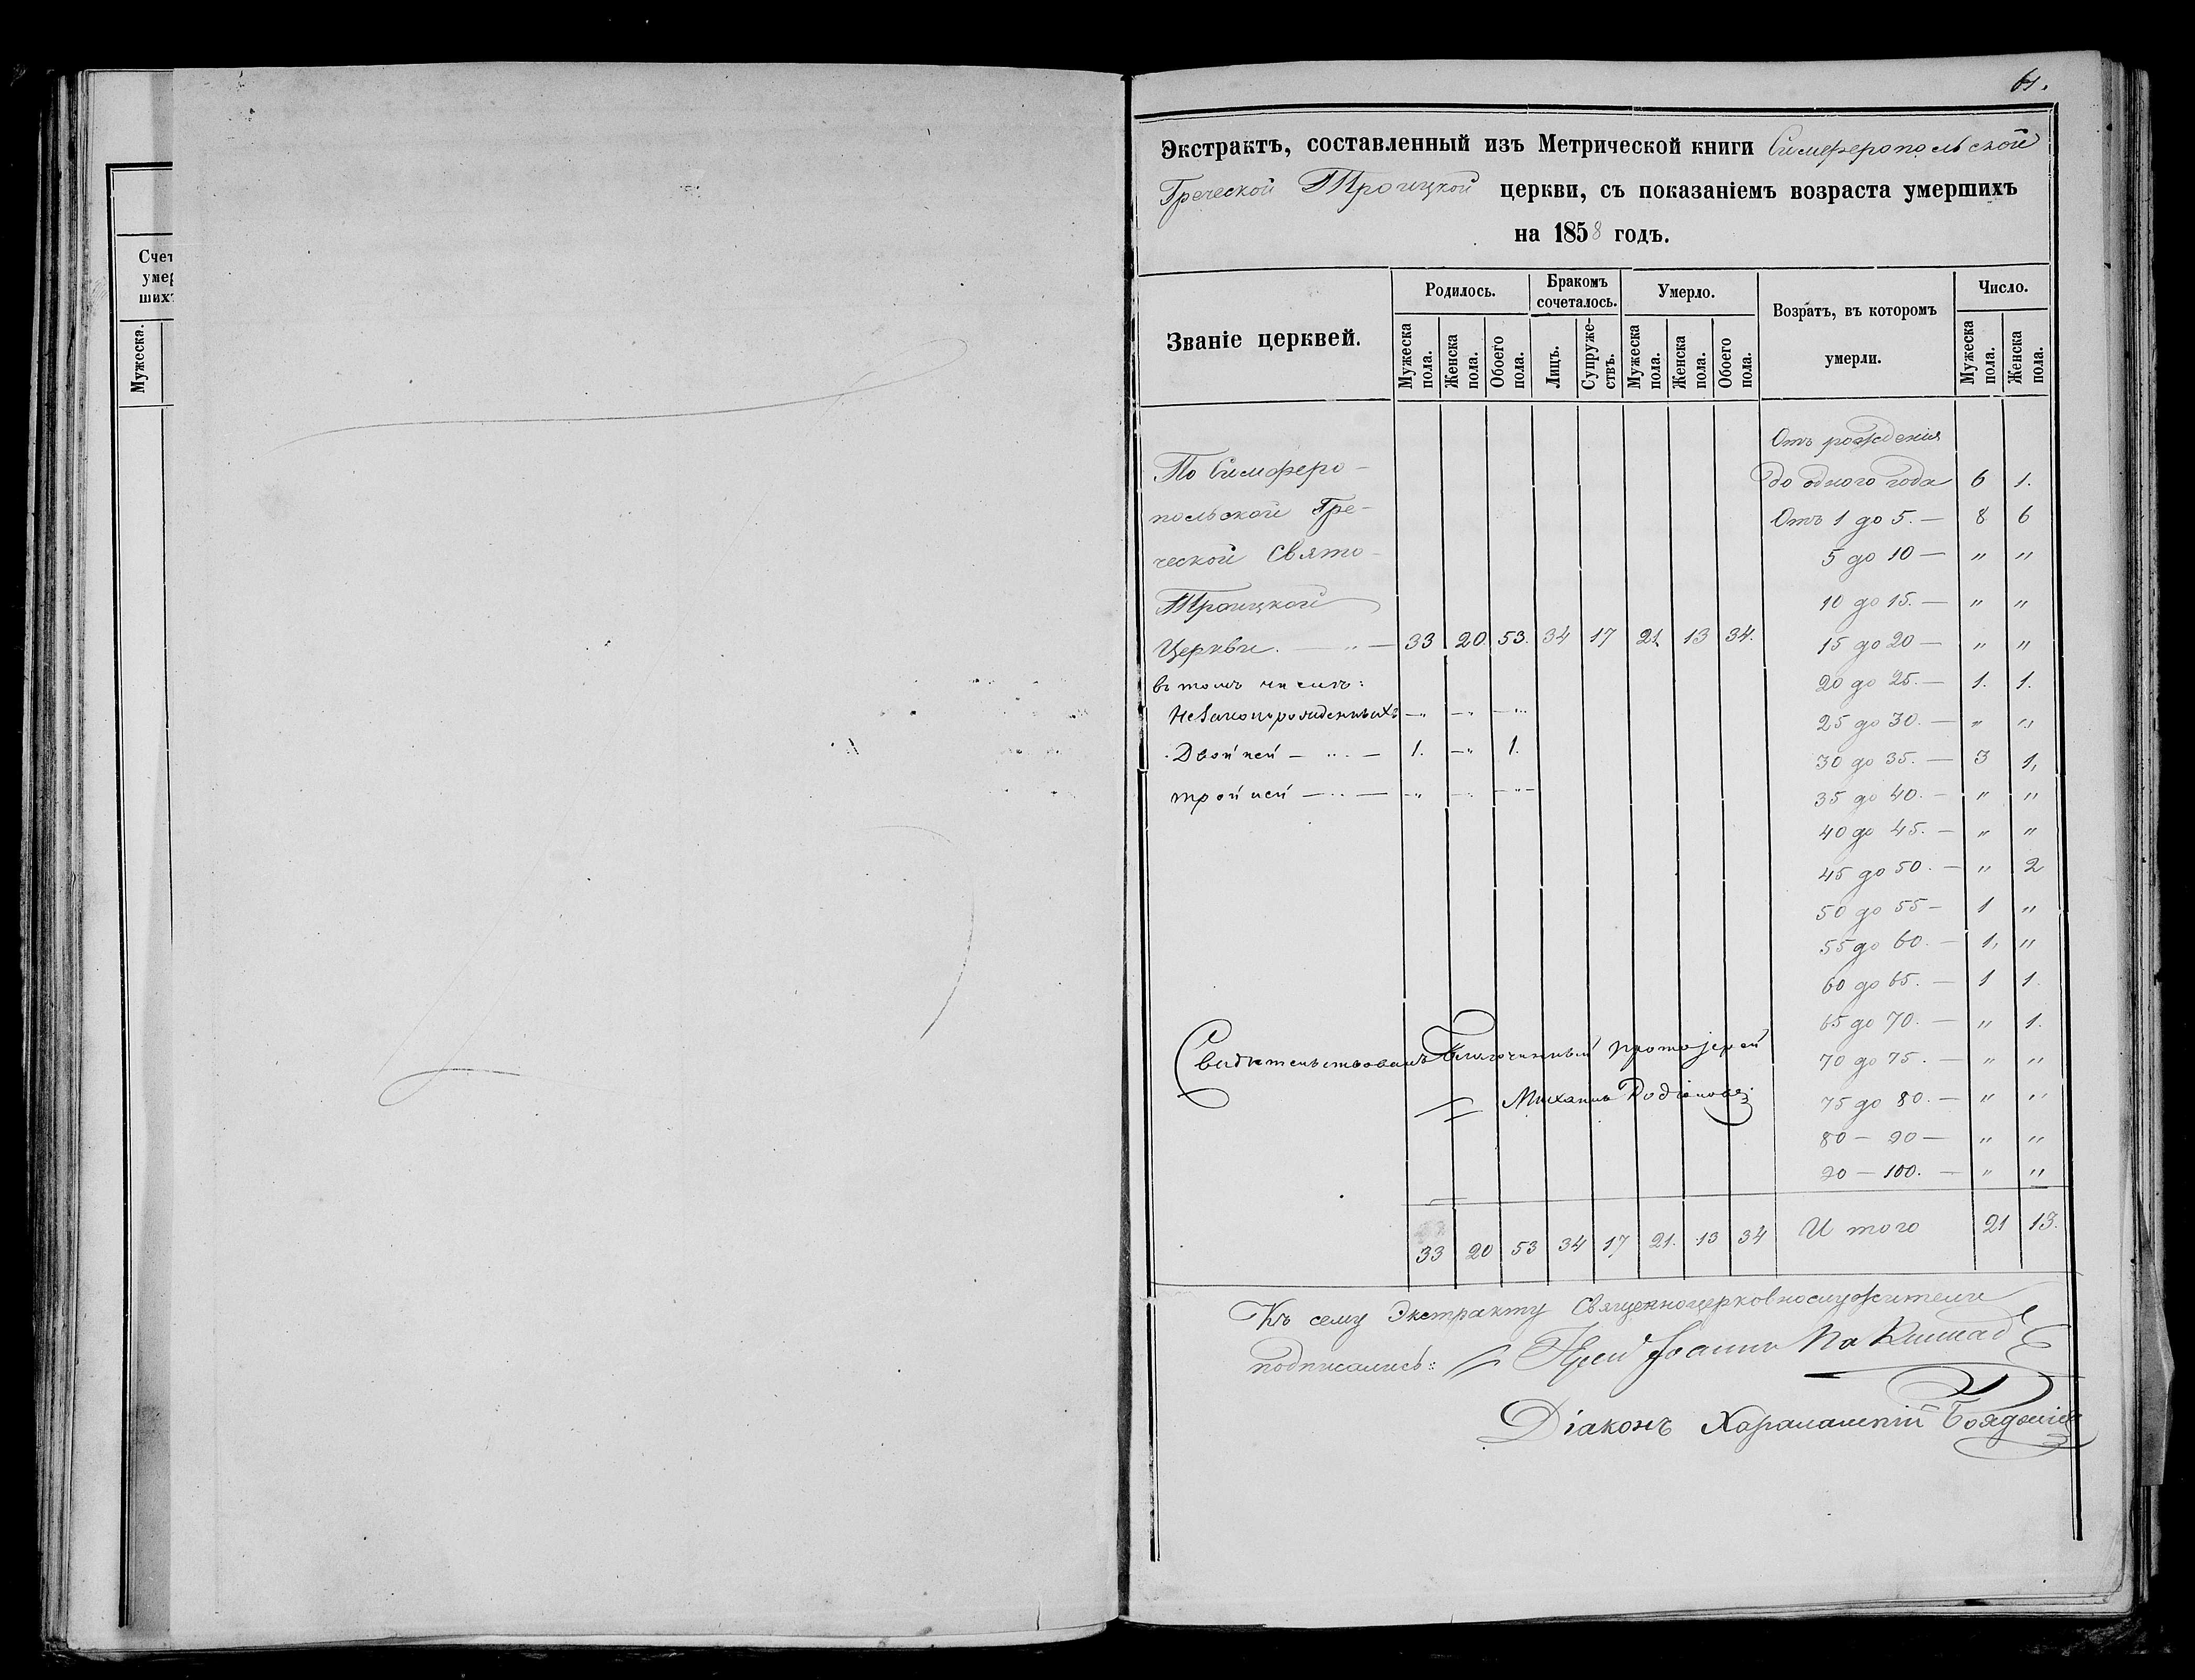 Счет
умер
ших
Мужеска.
61.
Экстрактъ, составленный изъ Метрической книги Симферопольской
Греческой Троицкой церкви, съ показаніемъ возраста умершихъ
на 1858 годъ.
Званіе церквей. Родилось. Бракомъ сочеталось. Умерло. Возратъ, въ которомъ умерли. Число.
Мужеска пола. Женска пола. Обоего пола. Лицъ. Супружествъ. Мужеска пола. Женска пола. Обоего пола. Мужеска пола. Женска пола.
Отъ рожденія
до одного года 6 1.
Отъ 1 до 5. — 8 6
5 до 10 — " "
10 до 15. — " "
15 до 20 — " "
20 до 25. — 1. 1.
25 до 30. — " "
30 до 35. — 3 1,
35 до 40. — " "
40 до 45. — " "
45 до 50. — " 2
50 до 55 — 1 "
55 до 60. — 1, "
60 до 65. — 1 1.
65 до 70. — " 1.
70 до 75. — " "
75 до 80. — " "
80 — 90 — " "
90 — 100. — " "
По Симферо-
польской Гре-
ческой Свято-
Троицкой
Церкви. — " — 33 20 53. 34 17 21 13 34.
въ томъ числѣ:
Незаконорожденныхъ — " — " — "
Двойней — " — 1. — " 1.
тройней — " — — " — " — " —
Свидѣтельствовалъ Благочинный Протоіерей
Михаилъ Родіоновъ
33 20 53 34 17 21. 13 34 Итого 21 13.
Къ сему Экстракту Священноцерковнослужители
подписались: Іерей Іоаннъ
Діаконъ Харалампій